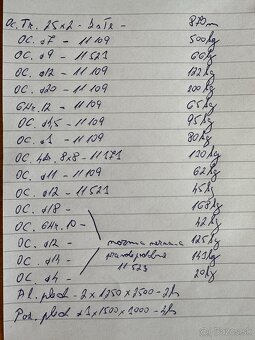 OC. Tr. 25x2 - 820m
OC. ⌀7 - 11 109 500kg
OC. ⌀9 - 11 521 66kg
OC. ⌀12 - 11 109 122kg
OC. ⌀20 - 11 109 200kg
6Hr. 12 - 11 109 65kg
OC. 11 109 95kg
OC. 11 109 80kg
OC. 4Hr. 8x8 - 11 171 120kg
OC. ⌀11 - 11 109 62kg
OC. ⌀12 - 11 521 45kg
OC. ⌀18 - 168kg
OC. 6Hr. 10 - 42kg
OC. ⌀12 - 125kg
OC. 141kg
OC. 20kg
pravdepodobne
11 523
Al. plech - 2x1250x2500 - 2ks
Poz. plech 1x1500x1000 - 2ks
bazos.sk